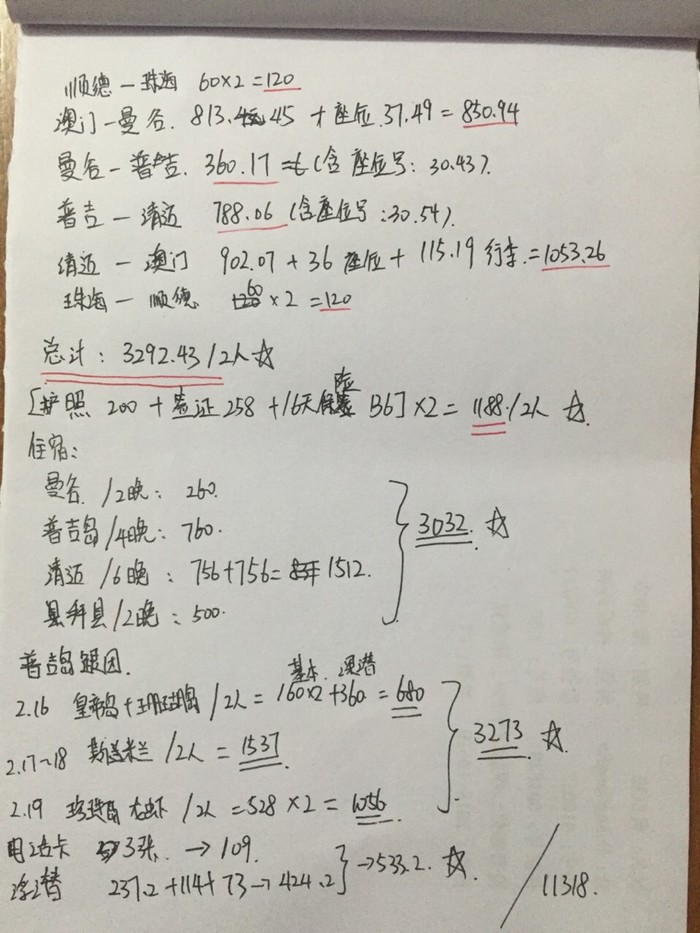 顺德 — 珠海 60×2 =120
澳门 — 曼谷. 813.45 + 座位.37.49 = 850.94
曼谷 — 普吉. 360.17 (含座位号: 30.43).
普吉 — 清迈 788.06 (含座位号:30.54).
清迈 — 澳门 902.07 + 36 座位 + 115.19 行李.=1053.26
珠海 — 顺德 60 × 2 =120
总计: 3292.43/2人 ☆
[护照 200 + 签证 258 + 16天保险 136] ×2 = 1188./2人 ☆.
住宿:
曼谷 /2晚: 260.
普吉岛/4晚: 760.
清迈 /6晚 : 756+756= 1512.
/2晚: 500.
3032. ☆
普吉岛跟团.
基本. 深潜
2.16 皇帝岛+珊瑚岛 /2人 = 160×2+360 = 680
2.17~18 斯米兰 /2人 = 1537.
2.19 /2人 =528 ×2 = 1056.
3273 ☆.
电话卡 3张. → 109.
浮潜 237.2+114+73→424.2
→533.2. ☆.
/11318.